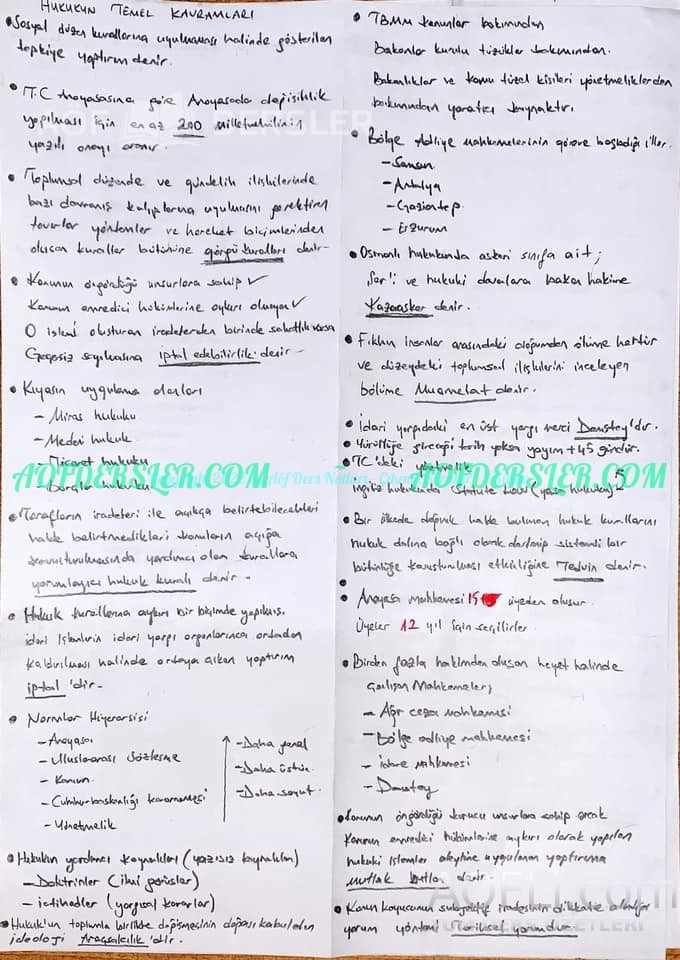 HUKUKUN TEMEL KAVRAMLARI
• Sosyal düzen kurallarına uyulmaması halinde gösterilen
tepkiye yaptırım denir.
• T.C Anayasasına göre Anayasada değişiklik
yapılması için en az 200 milletvekilinin
yazılı onayı aranır.
• Toplumsal düzende ve gündelik ilişkilerinde
bazı davranış kalıplarına uyulmasını gerektiren
tavırlar yöntemler ve hareket biçimlerinden
oluşan kurallar bütününe görgü kuralları denir-
• Kanunun öngördüğü unsurlara sahip ✓
Kanunun emredici hükümlerine aykırı olmayan ✓
O işlemi oluşturan iradelerden birinde sakatlık varsa
Geçersiz sayılmasına iptal edebilirlik denir-
• Kıyasın uygulama alanları
- Miras hukuku
- Medeni hukuk
- Ticaret hukuku
- Borçlar hukuku
AOFDERSLER.COM
• Tarafların iradeleri ile açıkça belirtebilecekleri
halde belirtmedikleri konuların açığa
kavuşturulmasında yardımcı olan kurallara
yorumlayıcı hukuk kuralı denir-
• Hukuk kurallarına aykırı bir biçimde yapılmış,
idari işlemlerin idari yargı organlarınca ortadan
kaldırılması halinde ortaya çıkan yaptırım
iptal 'dir.
• Normlar Hiyerarşisi
- Anayasa
- Uluslararası Sözleşme
- Kanun
- Cumhurbaşkanlığı kararnamesi
- Yönetmelik
- Daha genel
- Daha üstün
- Daha soyut
• Hukukun yardımcı kaynakları (yazısız kaynaklar)
- Doktrinler (ilmi görüşler)
- içtihadler (yargısal kararlar)
• Hukuk'un toplumla birlikte değişmesinin doğası kabul eden
ideoloji Araçsalcılık'dir.
• TBMM kanunlar bakımından
Bakanlar kurulu tüzükler bakımından.
Bakanlıklar ve kamu tüzel kişileri yönetmeliklerden
bakımından yaratıcı kaynaktır.
• Bölge Adliye mahkemelerinin göreve başladığı iller.
- Samsun
- Antalya
- Gaziantep
- Erzurum
• Osmanlı hukukunda askeri sınıfa ait;
Şer'i ve hukuki davalara bakan hakime
Kazasker denir.
• Fıkhın insanlar arasındaki doğumdan ölüme her tür
ve düzeydeki toplumsal ilişkilerini inceleyen
bölüme Muamelat denir.
• İdari yargıdaki en üst yargı merci Danıştay'dır.
• Yürürlüğe gireceği tarih yoksa yayım +45 gündür.
• TC'deki yönetmelik
AOFDERSLER.COM
İngiliz hukukunda Statute Law (yasa hukuku)
• Bir ülkede dağınık halde bulunan hukuk kurallarını
hukuk dalına bağlı olarak derlenip sistemli bir
bütünlüğe kavuşturulması etkinliğine Tedvin denir.
• Anayasa mahkemesi 15 üyeden oluşur.
Üyeler 12 yıl için seçilirler.
• Birden fazla hakimden oluşan heyet halinde
çalışan Mahkemeler;
- Ağır ceza mahkemesi
- Bölge adliye mahkemesi
- İdare Mahkemesi
- Danıştay
• Kanunun öngördüğü kurucu unsurlara sahip ancak
Kanunun emredici hükümlerine aykırı olarak yapılan
hukuki işlemler aleyhine uygulanan yaptırıma
mutlak butlan denir.
• Kanun koyucunun subjektif iradesinin dikkate alındığı
yorum yöntemi tarihsel yorumdur.